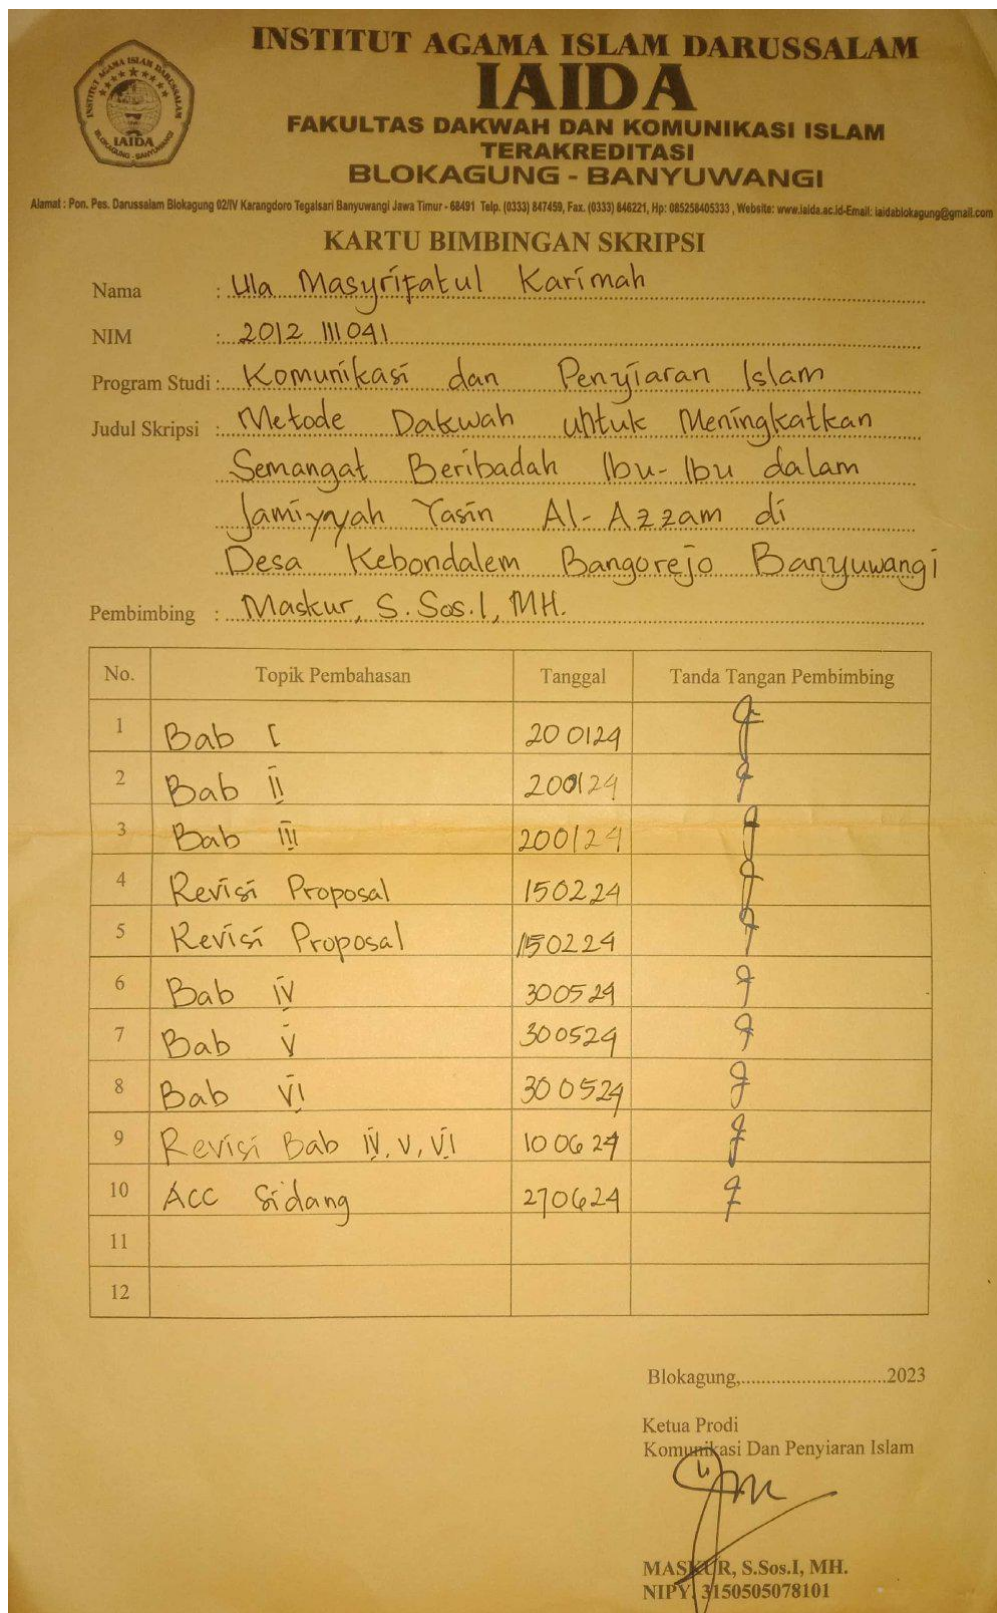 INSTITUT AGAMA ISLAM DARUSSALAM
IAIDA
FAKULTAS DAKWAH DAN KOMUNIKASI ISLAM
TERAKREDITASI
BLOKAGUNG - BANYUWANGI
INSTITUT AGAMA ISLAM DARUSSALAM
IAIDA
BLOKAGUNG - BANYUWANGI
Alamat : Pon. Pes. Darussalam Blokagung 02/IV Karangdoro Tegalsari Banyuwangi Jawa Timur - 68491 Telp. (0333) 847459, Fax. (0333) 846221, Hp: 085258405333 , Website: www.iaida.ac.id-Email: iaidablokagung@gmail.com
KARTU BIMBINGAN SKRIPSI
Nama : Ula Masyrifatul Karimah
NIM : 2012 111 041
Program Studi : Komunikasi dan Penyiaran Islam
Judul Skripsi : Metode Dakwah untuk Meningkatkan
Semangat Beribadah Ibu-Ibu dalam
Jamiyyah Yasin Al-Azzam di
Desa Kebondalem Bangorejo Banyuwangi
Pembimbing : Maskur, S.Sos.I, MH.
No. Topik Pembahasan Tanggal Tanda Tangan Pembimbing
1 Bab I 200124
2 Bab II 200124
3 Bab III 200124
4 Revisi Proposal 150224
5 Revisi Proposal 150224
6 Bab IV 300524
7 Bab V 300524
8 Bab VI 300524
9 Revisi Bab IV, V, VI 100624
10 ACC Sidang 270624
11
12
Blokagung,............................2023
Ketua Prodi
Komunikasi Dan Penyiaran Islam
MASKUR, S.Sos.I, MH.
NIPY. 3150505078101